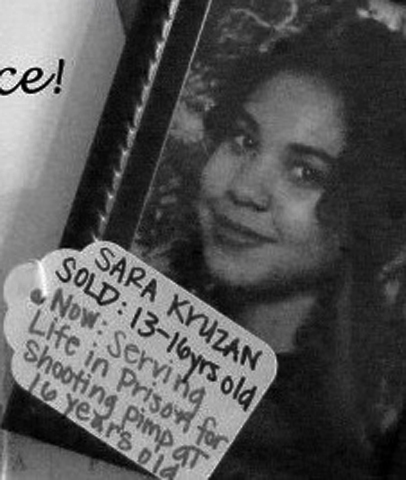 ce!
SARA KYUZAN
SOLD: 13-16yrs old
Now: Serving
Life in Prison for
shooting pimp at
16 years old